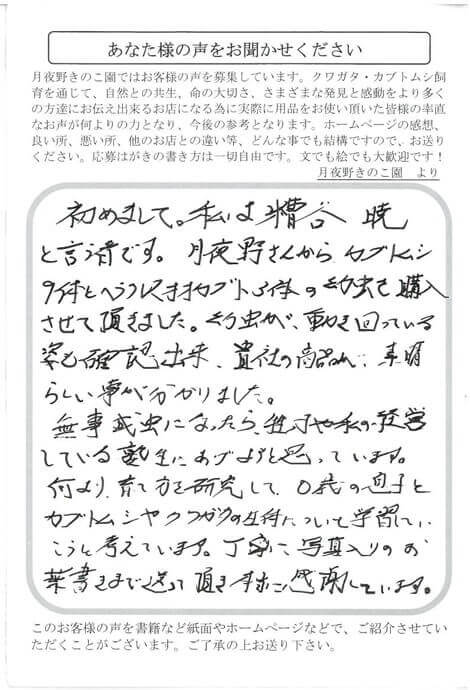 あなた様の声をお聞かせください
月夜野きのこ園ではお客様の声を募集しています。クワガタ・カブトムシ飼
育を通じて、自然との共生、命の大切さ、さまざまな発見と感動をより多く
の方達にお伝え出来るお店になる為に実際に用品をお使い頂いた皆様の率直
なお声が何よりの力となり、今後の参考となります。ホームページの感想、
良い所、悪い所、他のお店との違い等、どんな事でも結構ですので、お送り
ください。応募はがきの書き方は一切自由です。文でも絵でも大歓迎です！
月夜野きのこ園　より
初めまして。私は糟谷　暁
と言う者です。月夜野さんから カブトムシ
9体とヘラクレスオオカブト3体の幼虫を購入
させて頂きました。幼虫が、動き回っている
姿も確認出来、貴社の商品が、素晴
らしい事が分かりました。
無事成虫になったら、息子や私の経営
している塾生にあげようと思っています。
何より、育て方を研究して、0歳の息子と
カブトムシやクワガタの生体について学習してい
こうと考えています。丁寧に、写真入りのお
葉書きまで送って頂き本当に感謝しています。
このお客様の声を書籍など紙面やホームページなどで、ご紹介させてい
ただくことがございます。ご了承の上お送り下さい。